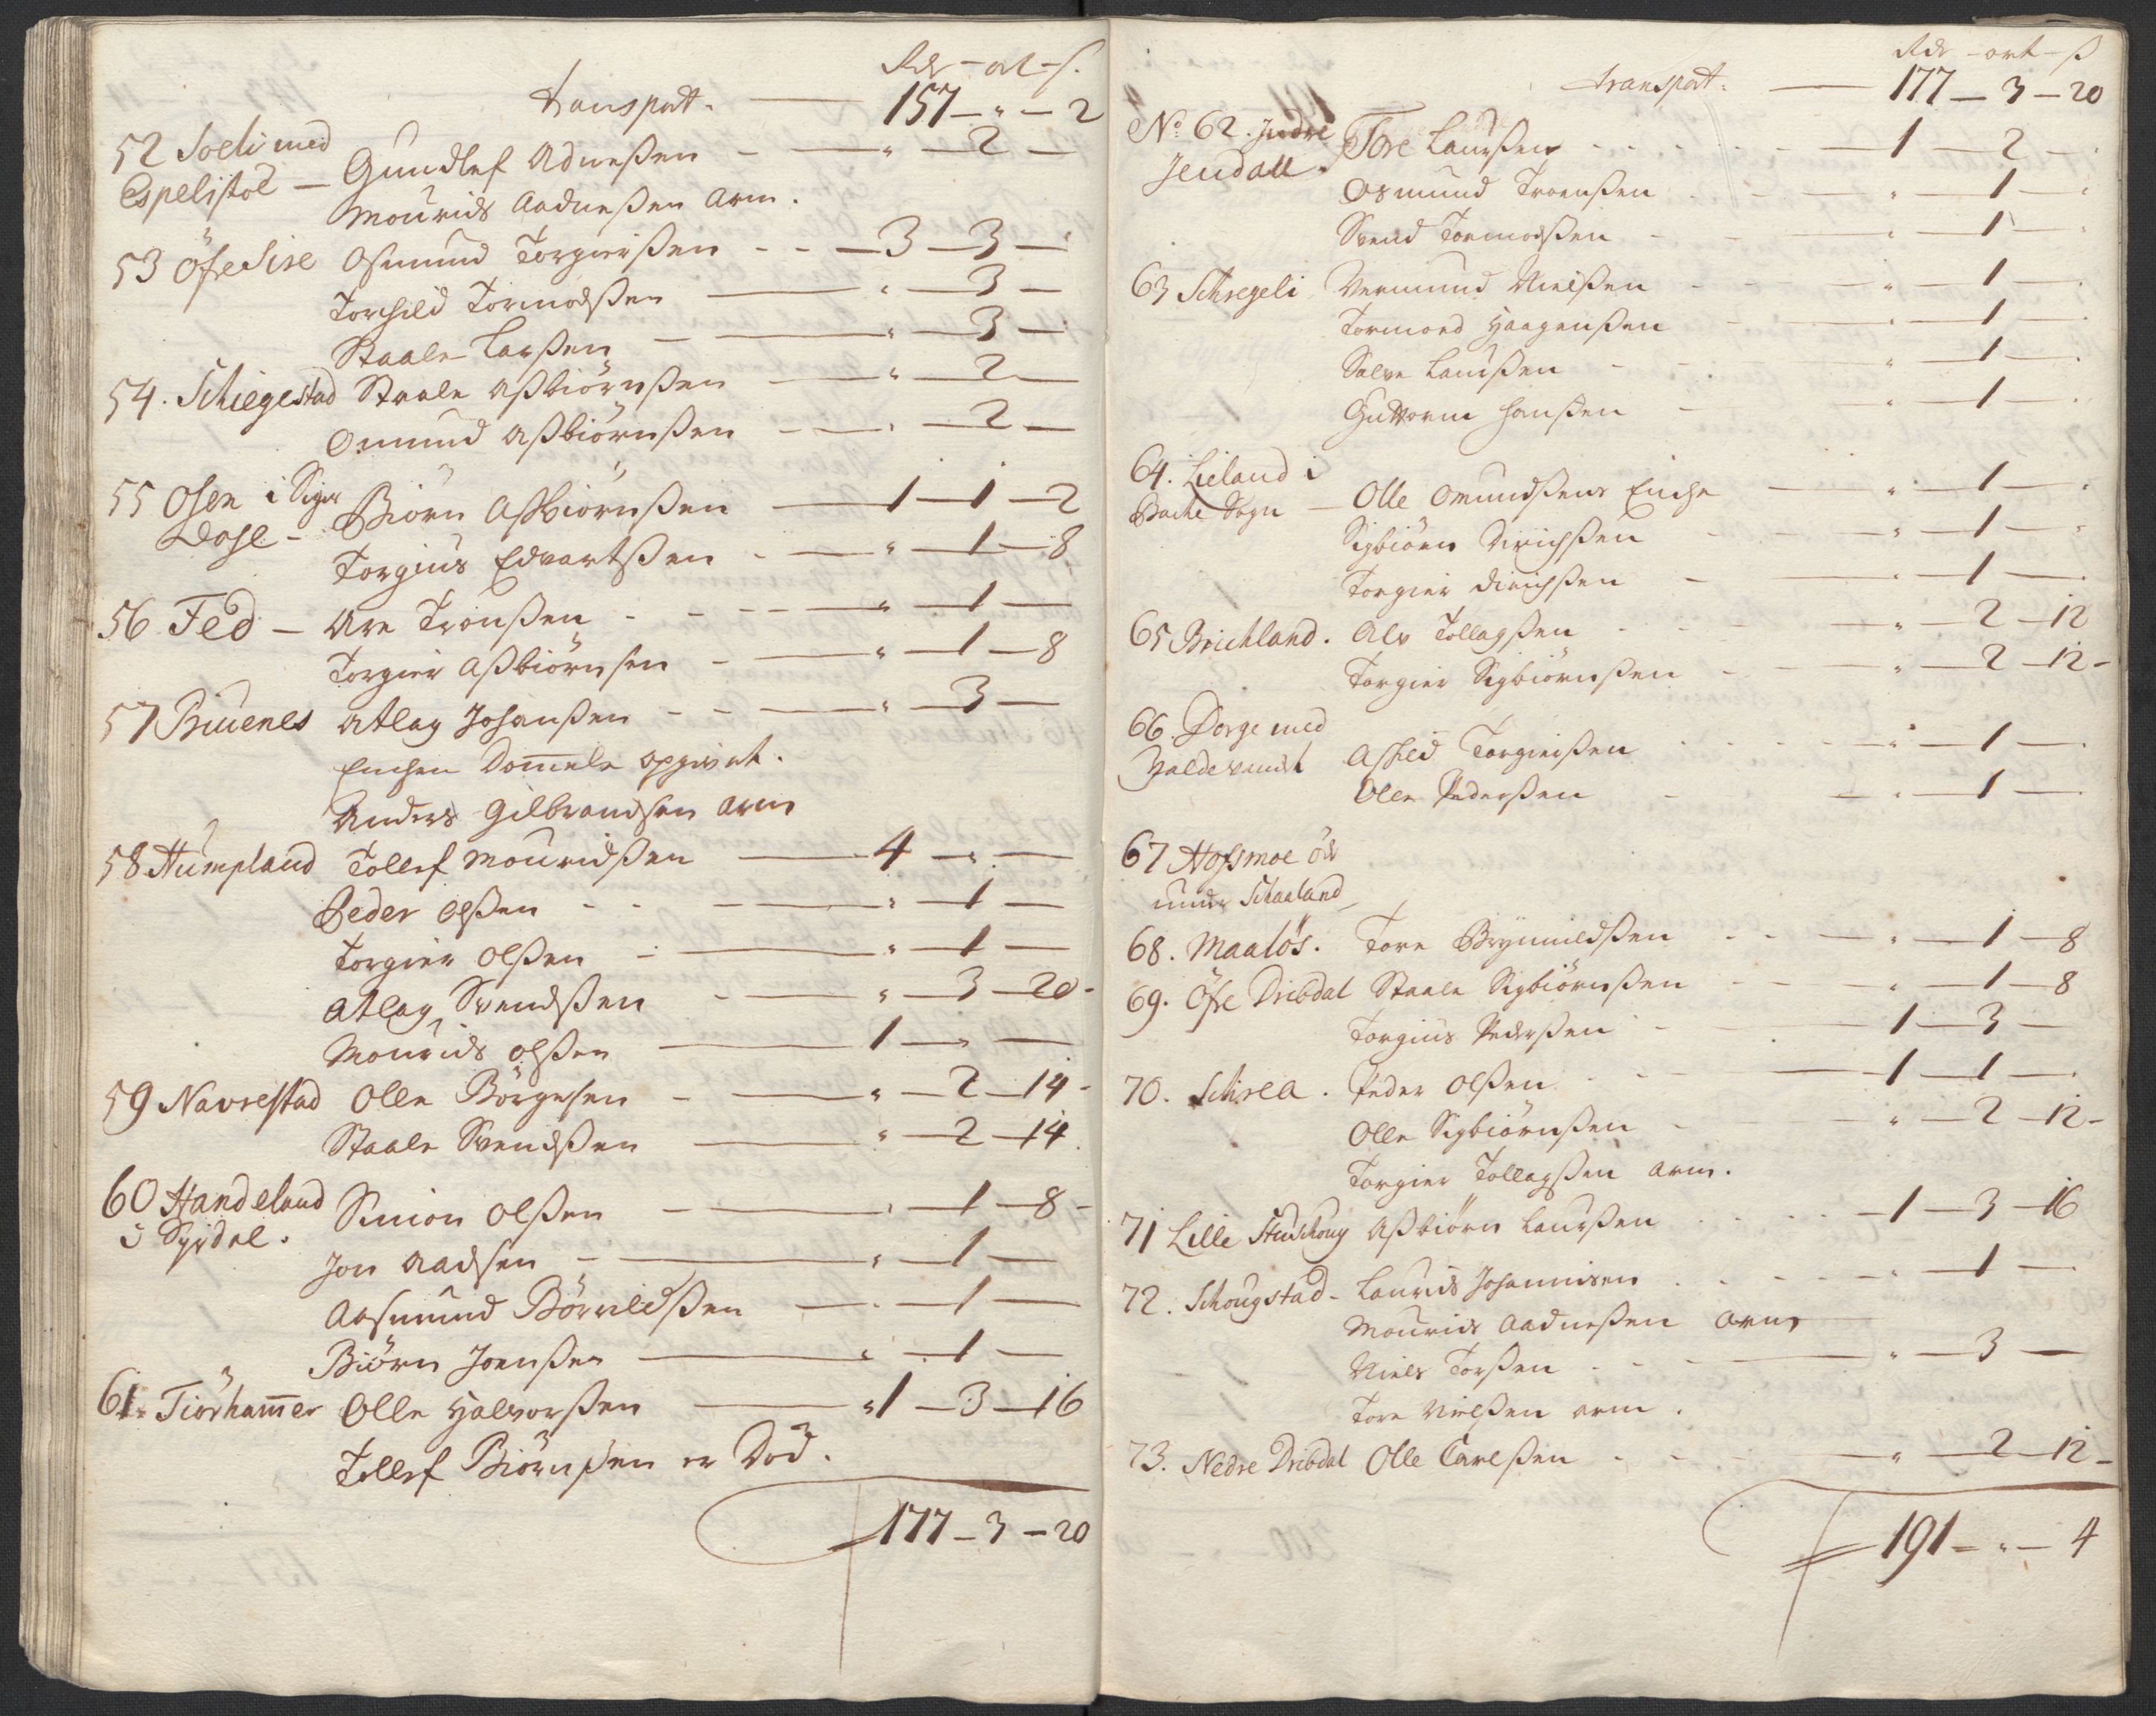 Rdr - ort - s.
Transport. — 157 — " — 2
52 Soeli med
Espelistöl — Gundlef Adneßen — " — 2 —
Mourids Aadneßen Arm.
53 Öfre Sire Osmund Torgierßen - - — 3 — 3 —
Torchild Tormodßen — " — 3 —
Staale Larßen — " — 3 —
54. Schiegestad Staale Aßbiörnßen — " — 2 —
Omund Aßbiörnßen — " — 2 —
55 Osen i Siger
Dose - Biörn Aßbiörnßen — 1 — 1 — 2
Torgius Edvartßen - — " — 1 — 8
56 Fed — Are Tronßen - - — " — 1 —
Torgier Aßbiörnsen - — " — 1 — 8
57 Biuenes Atlag Johanßen - - — " — 3 —
Enchen Dom̄ele opgivet.
Anders Gilbrandsen Arm
58 Humpland Tollef Mouridßen — 4 — " —
Peder Olßen - - — " — 1 —
Torgier Olßen — " — 1 —
Atlag Svendßen - — " — 3 — 20 -
Mourids Olßen — 1 — " —
59 Navrestad Olle Börgesen - — " — 2 — 14 -
Staale Svendßen — " — 2 — 14.
60 Handeland
i Syrdal. Simon Olßen — " — 1 — 8 -
Jon Aadsen — " — 1 —
Aasmund Börrildßen — " — 1 —
Biörn Joenßen — " — 1 —
61. Tiörham̄er Olle Halvorßen — " 1 — 3 — 16
Tollef Biörnßen er Död.
177 — 3 — 20
Rdr - ort - ß
Transport. — 177 — 3 — 20
No 62. Indre
Jendall. Tore Laurßen - - - — 1 — 2 —
Osmund Tronßen - - " — 1 —
Svend Tormodßen - - " — 1 —
63 Schregeli Vermund Nielßen - - " — 1 —
Tormoed Haagenßen - " — 1 —
Salve Laurßen - - " — 1 —
Guttorm Hanßen - " — 1 —
64. Lieland i
Bache Sogn — Olle Omundßens Enche — " — 1 —
Sigbiörn Dirichßen - — " — 1 —
Torgier Dirichßen - " — 1 —
65 Brichland. Alv Tollagßen - — " — 2 — 12
Torgier Sigbiörnßen - — " — 2 — 12 -
66. Dorge med
Haldevandt Aßild Torgierßen - - — " — 1 —
Olle Pederßen - — " — 1 —
67 Hofsmoe öd
under Schaaland
68. Maalös. Tore Brynnildßen - - — " — 1 — 8
69. Öfre Dribdal Staale Sigbiörnßen - - — " — 1 — 8
Torgius Pederßen - — 1 — 3 —
70. Schrea. Peder Olßen - - — 1 — 1 —
Olle Sigbiörnßen - — " — 2 — 12 -
Torgier Tollagßen Arm.
71 Lille Studschoug Aßbiörn Laurßen - - — 1 — 3 — 16
72. Schougstad - Laurids Johannisen - - - " — 1 —
Mourids Aadneßen Arm
Niels Torßen - - - — " — 3 —
Tore Nielßen arm.
73. Nedre Dribdal Olle Carlßen - - — " — 2 — 12 -
191 — " — 4